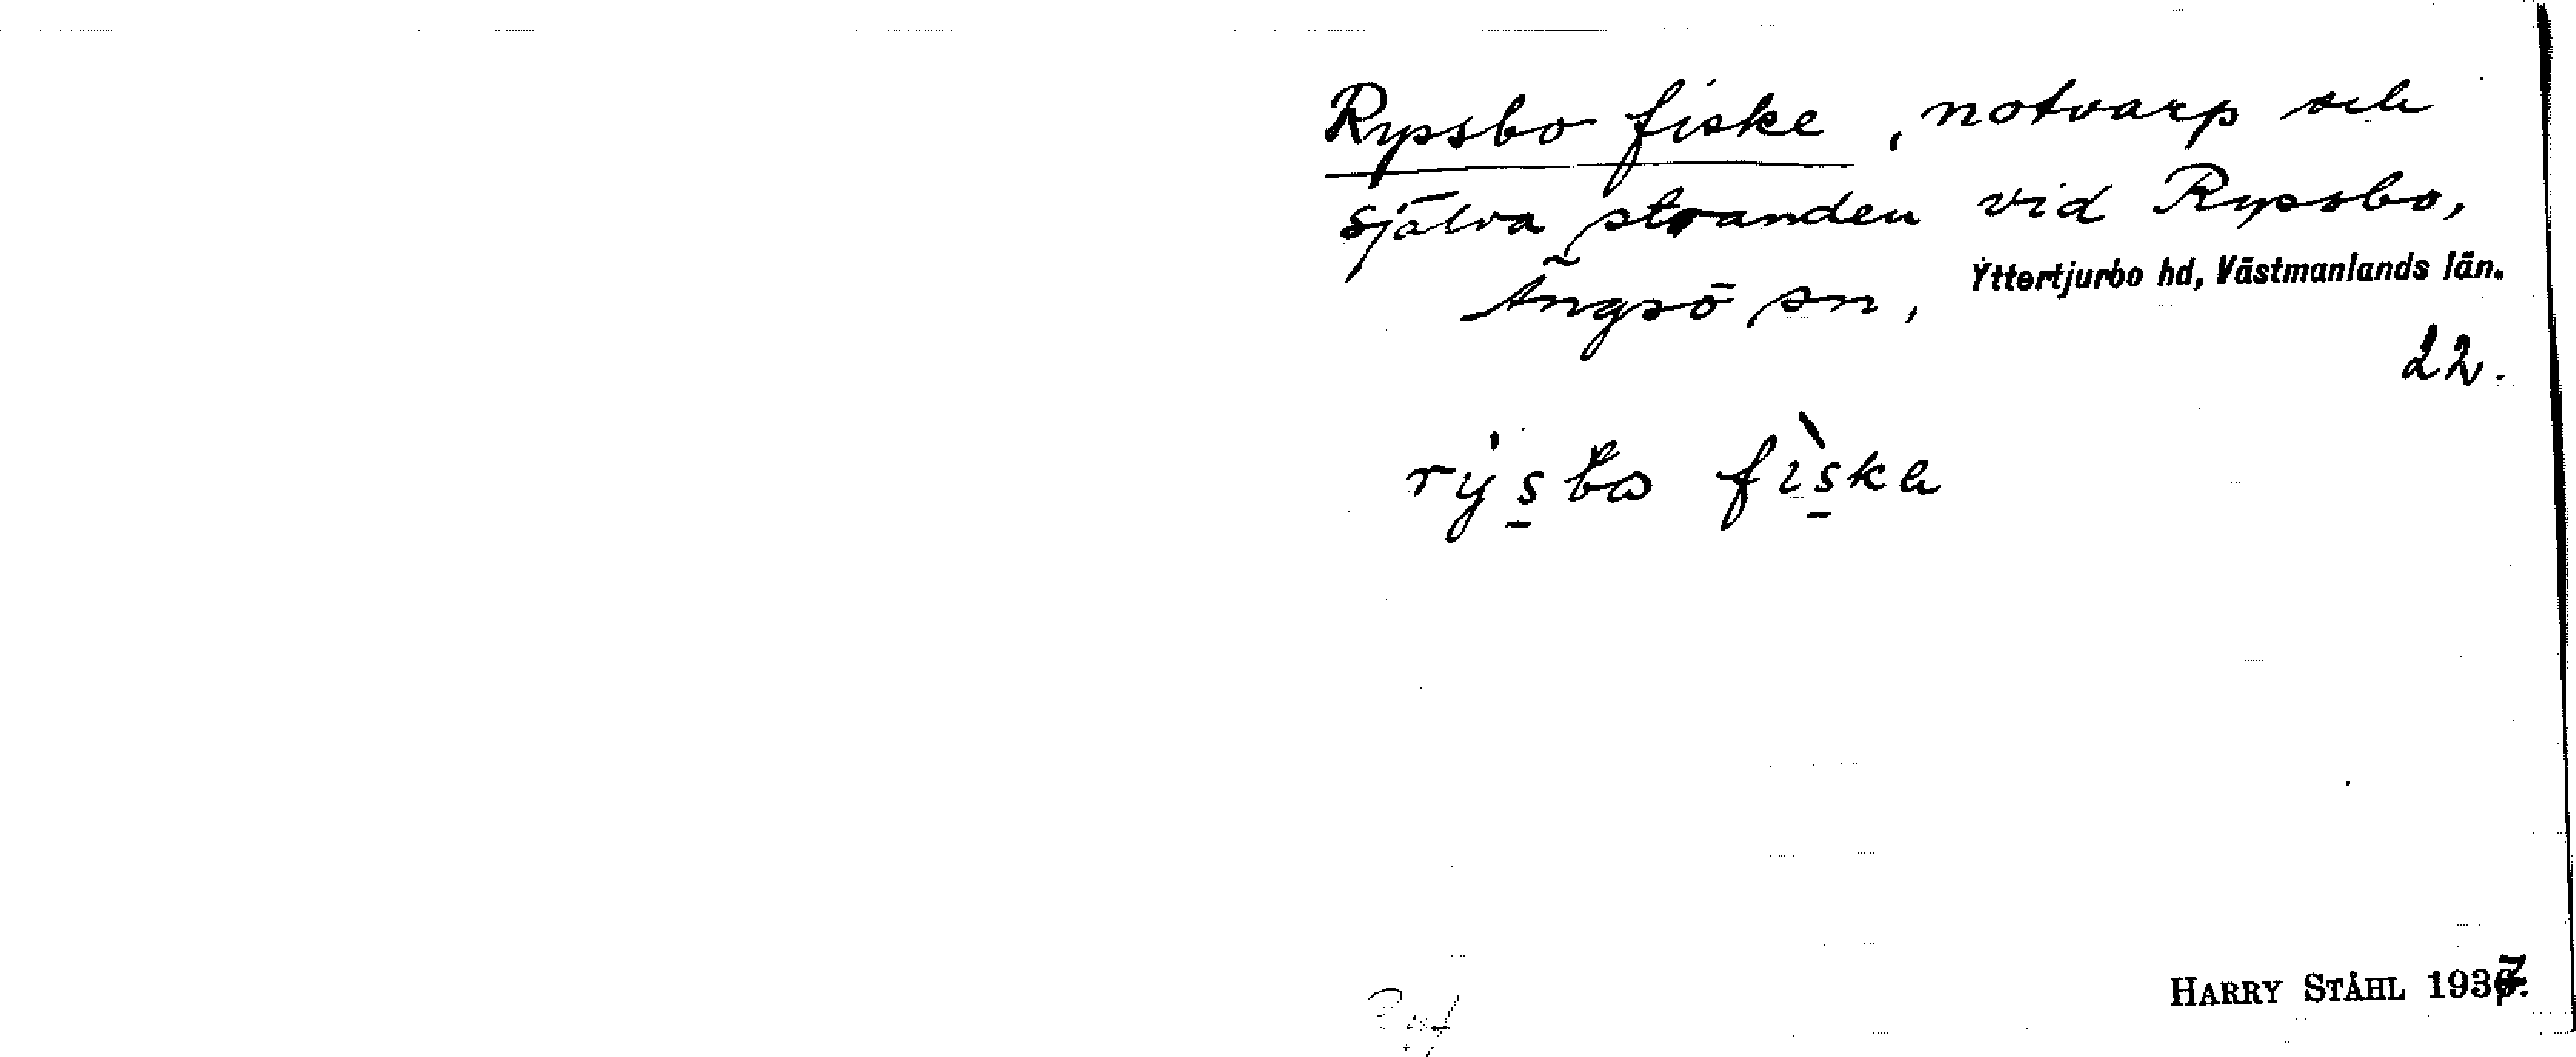 Ryssbo fiske, notvarp och
själva stranden vid Ryssbo,
Ängsö sn, Yttertjurbo hd, Västmanlands län.
22.
rýsbo fìska
HARRY STÅHL 1937.